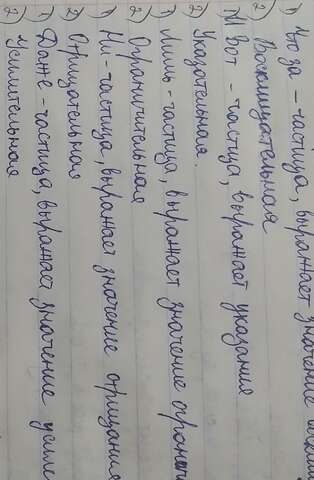 1) Что за - частица, выражает значение
2) Восклицательная
1) Вот - частица, выражает указание
2) Указательная.
1) Лишь - частица, выражает значение огранич
2) Ограничительная
1) Ни - частица, выражает значение отрицания
2) Отрицательная
1) Даже - частица, выражает значение усиле
2) Усилительная